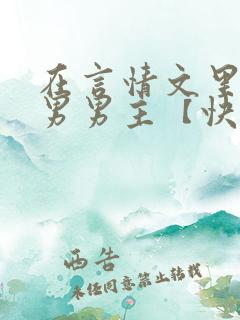 在言情文里
男男主【快
西告
未经同意禁止转载